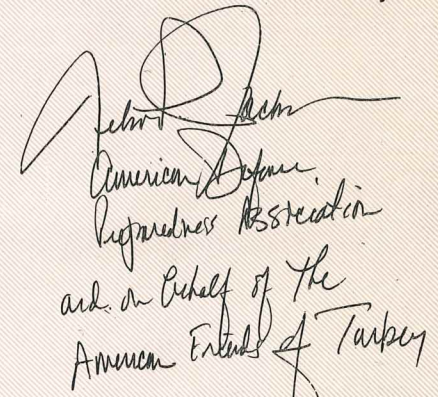 American Defense
Preparedness Association
and on behalf of the
American Friends of Turkey